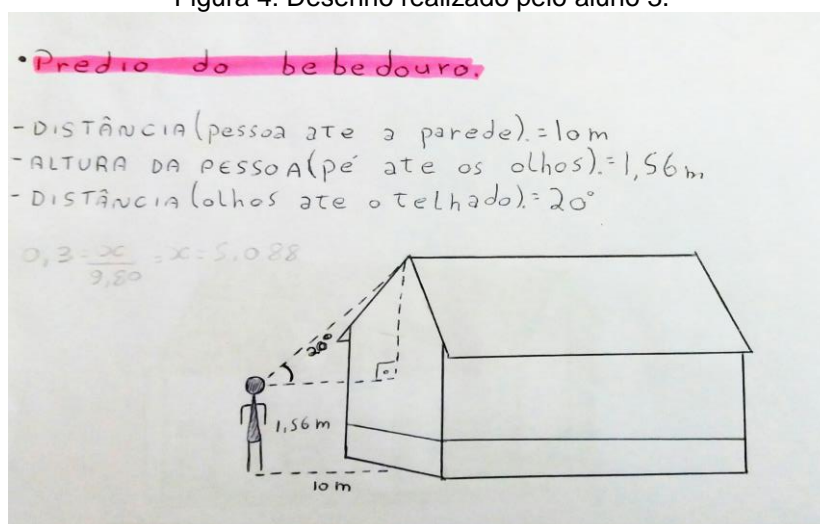 Figura 4: Desenho realizado pelo aluno 3.
• Predio do bebedouro.
- DISTÂNCIA (pessoa ate a parede). = 10 m
- ALTURA DA PESSOA (pé ate os olhos). = 1,56 m
- DISTÂNCIA (olhos ate o telhado). = 20°
0,3 = x/9,80 = x = 5.088
20°
1,56 m
10 m